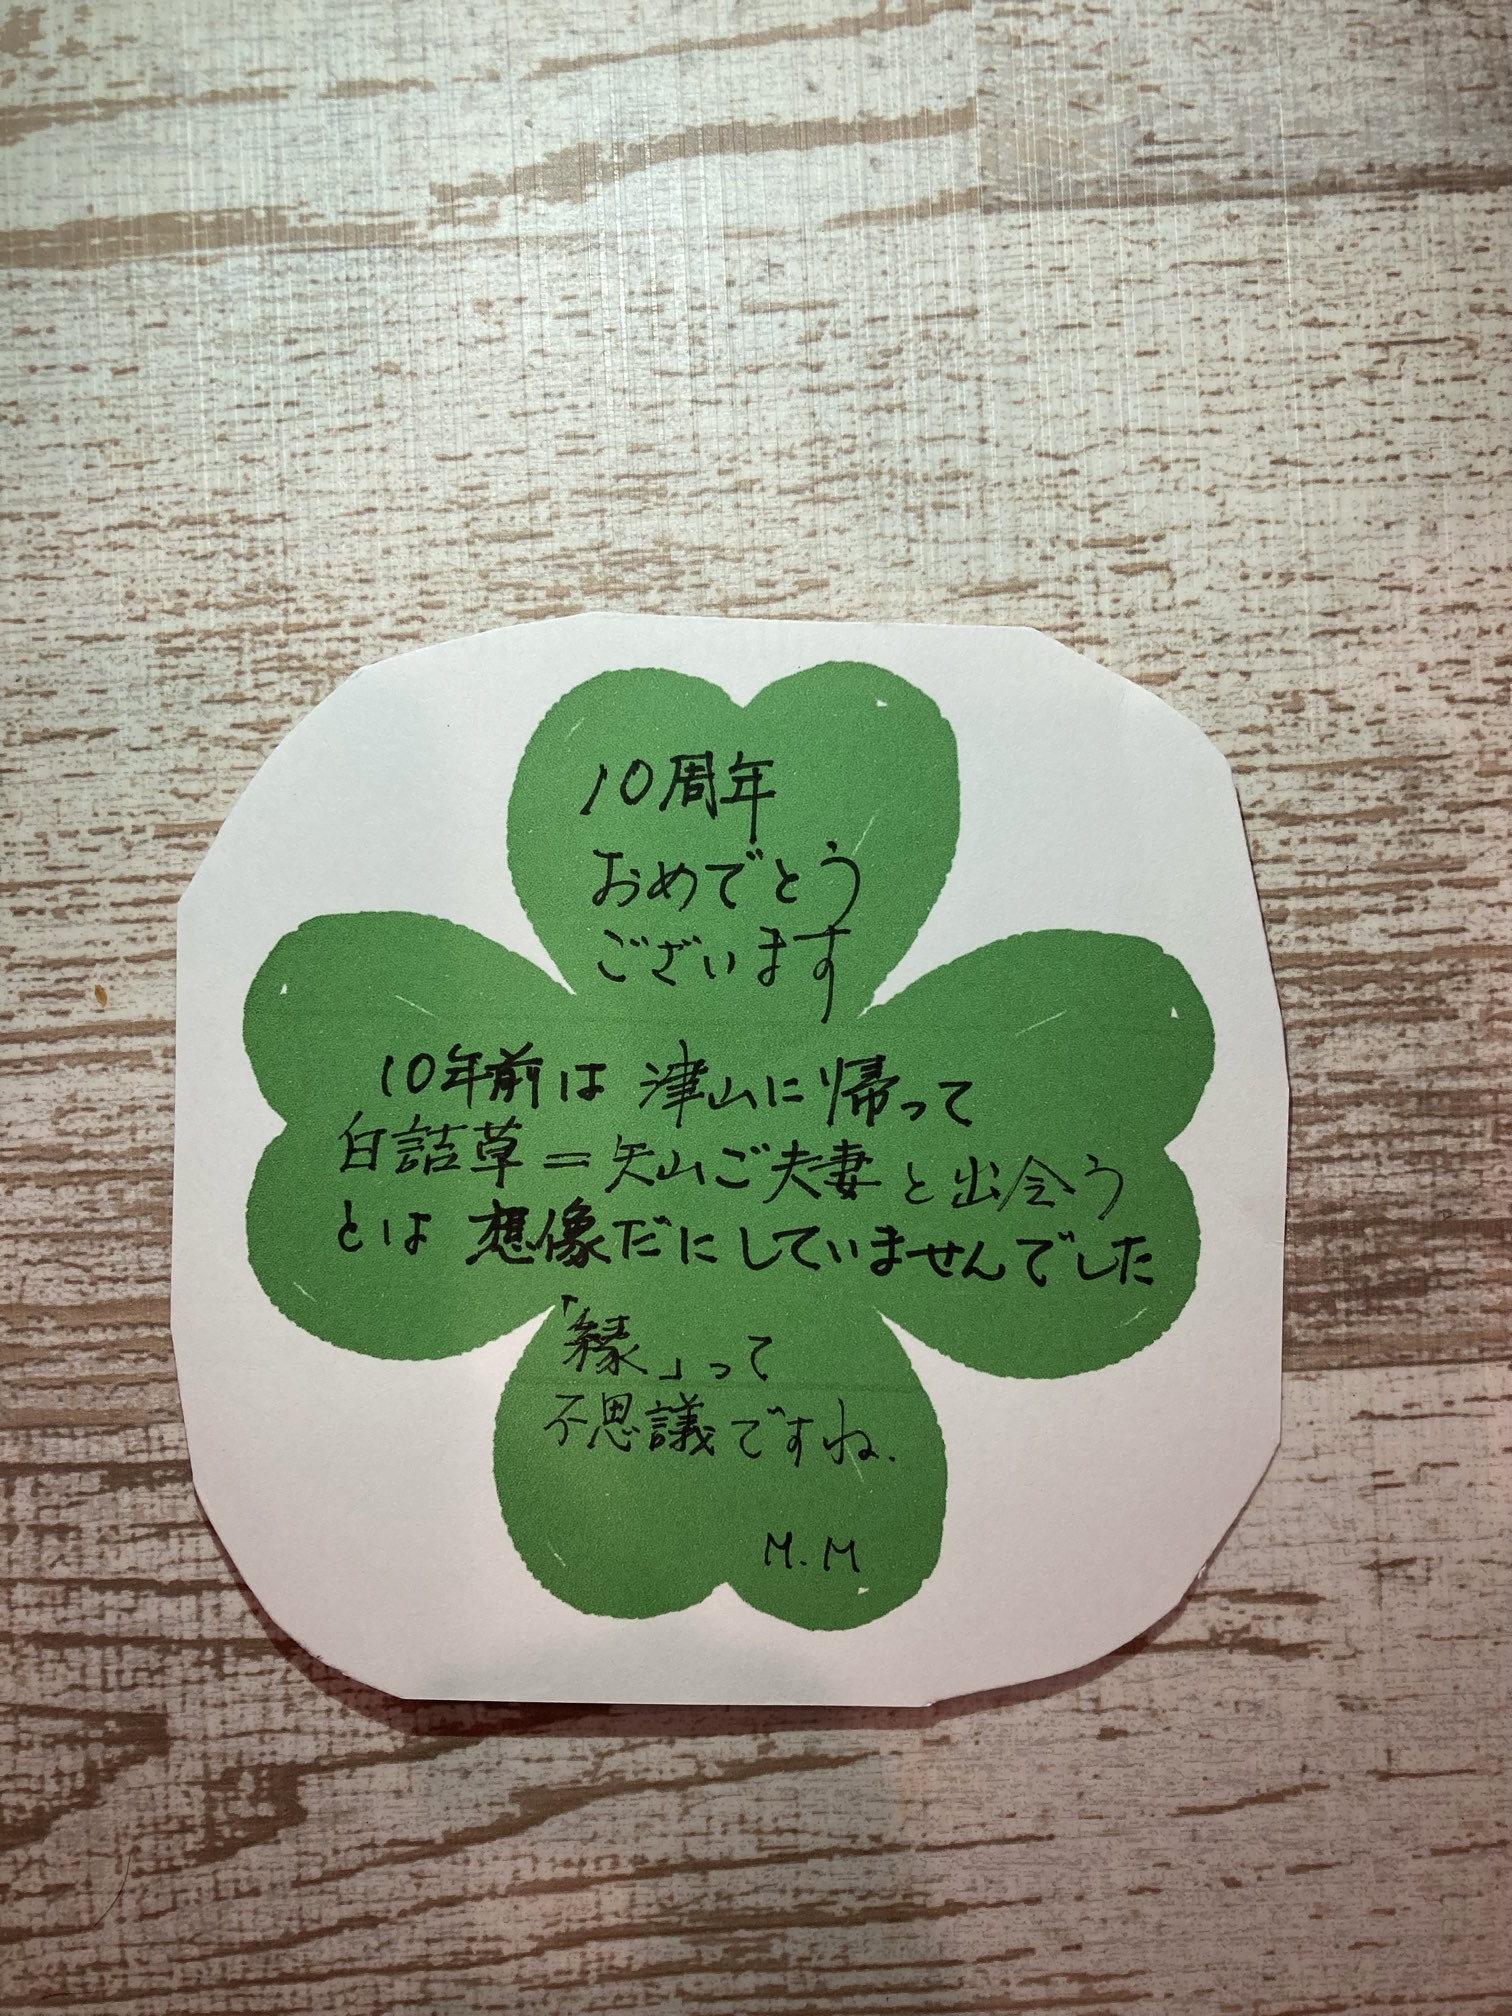 10周年
おめでとう
ございます
10年前は 津山に帰って
白詰草=矢山ご夫妻と出会う
とは 想像だにしていませんでした
「縁」って
不思議ですね.
M.M